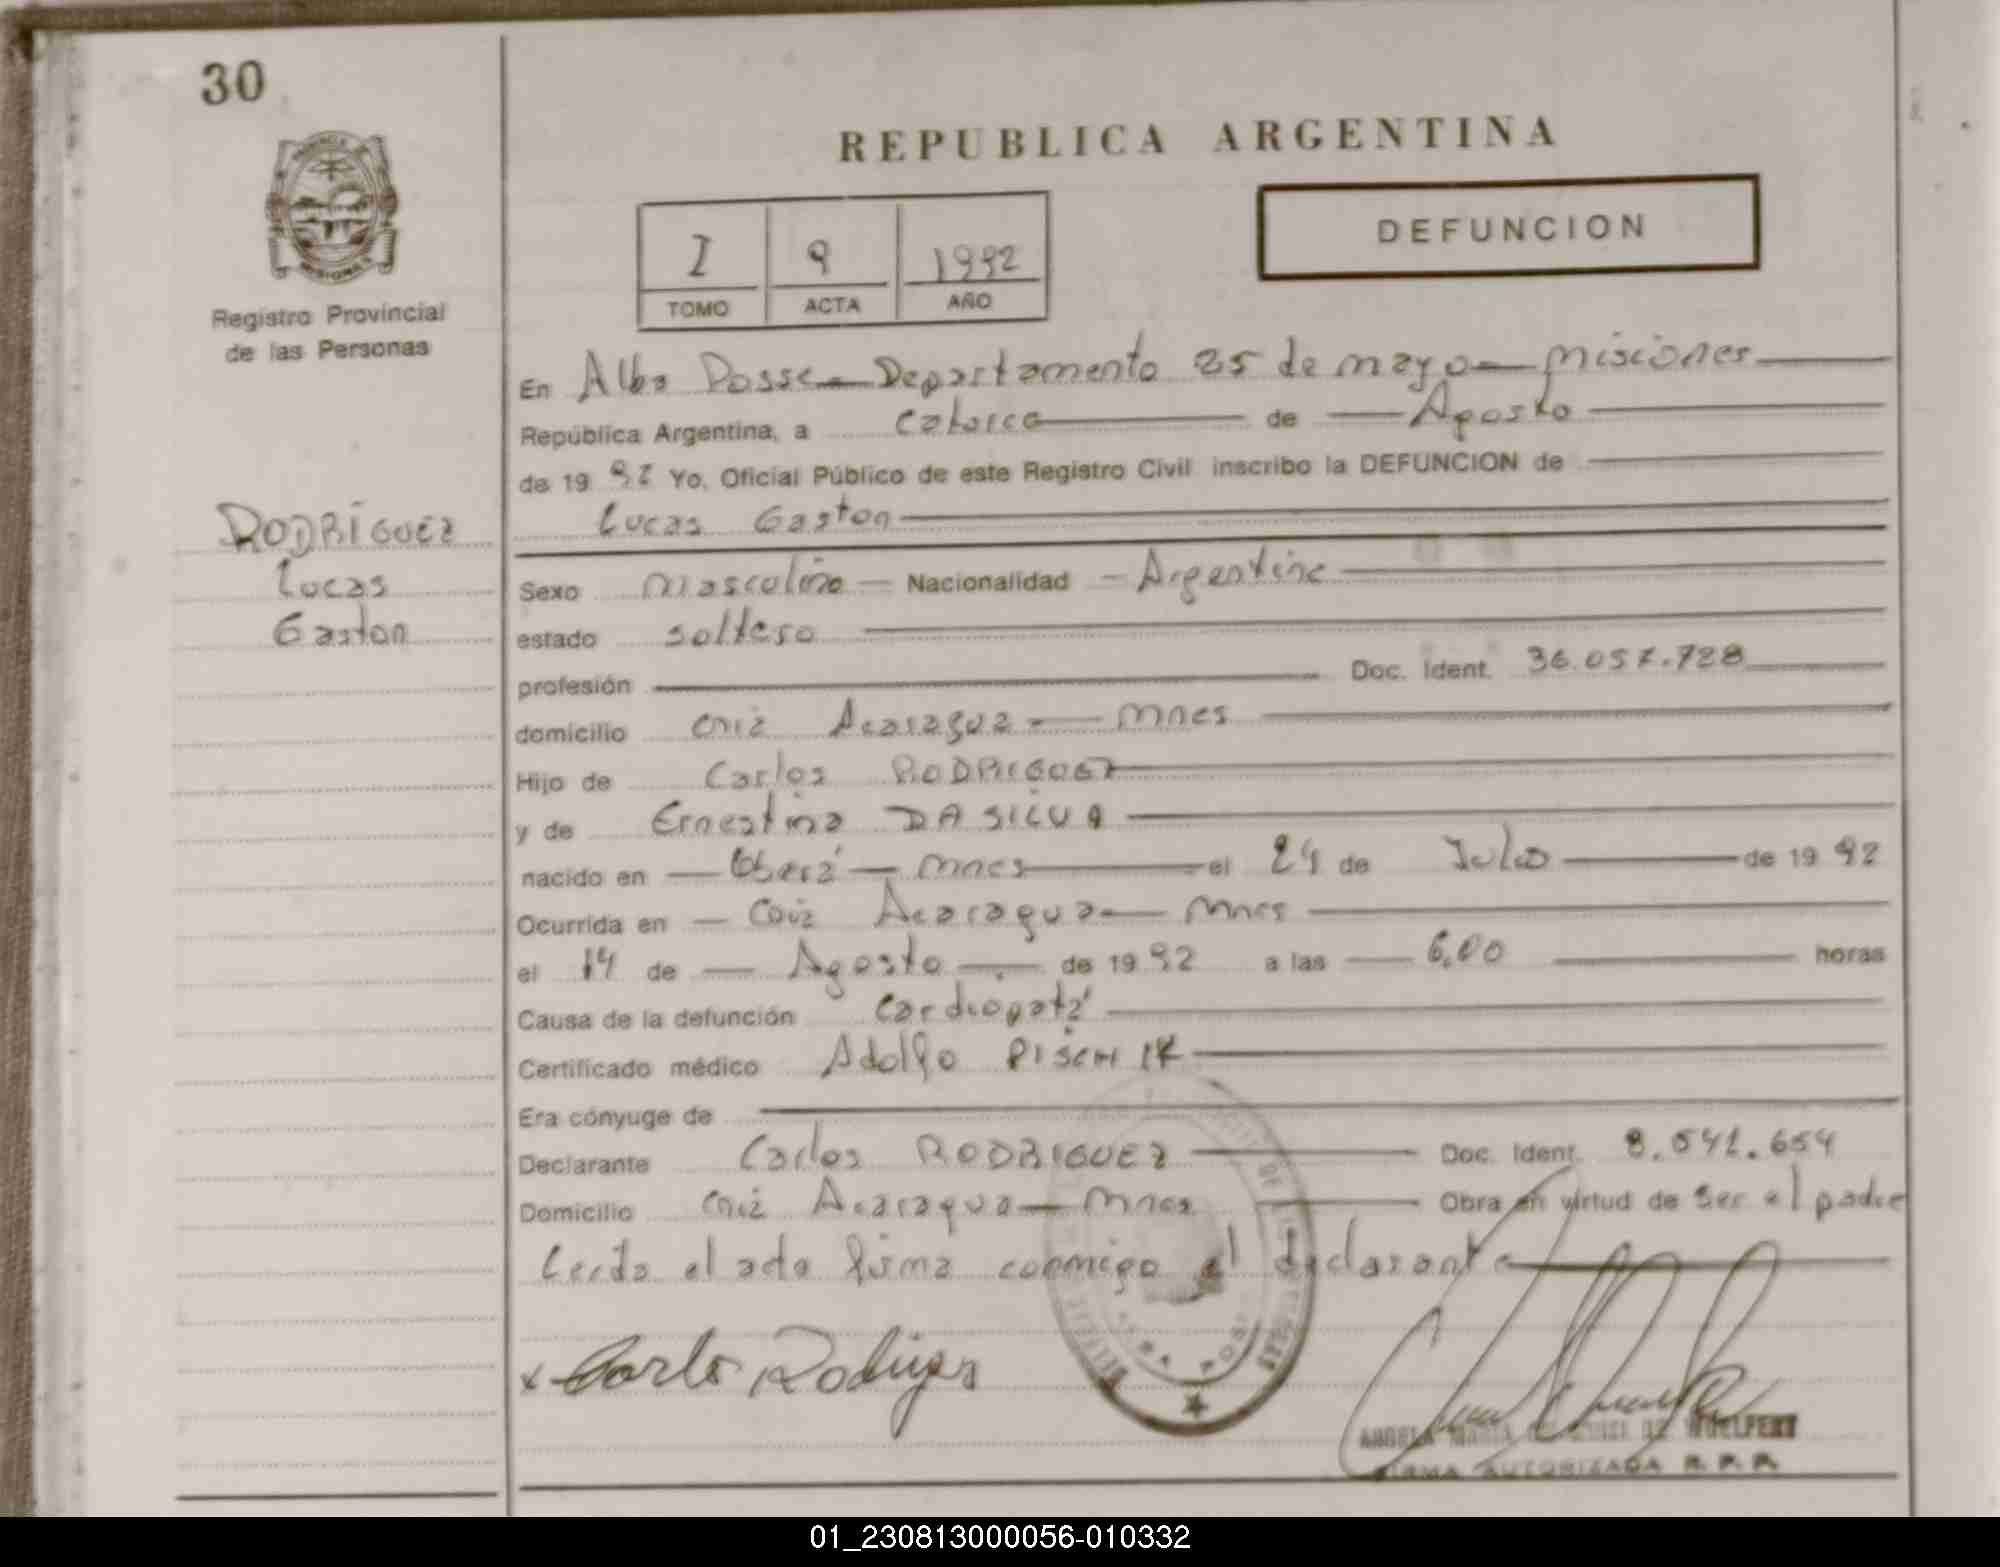 30
REPUBLICA ARGENTINA
DEFUNCION
I 9 1992
TOMO ACTA AÑO
MISIONES
Registro Provincial
de las Personas
En Alba Posse - Departamento 25 de mayo - misiones
República Argentina, a catorce de Agosto
de 19 92 Yo, Oficial Público de este Registro Civil inscribo la DEFUNCION de
RODRÍGUEZ
Lucas
Gaston
Lucas Gaston
Sexo masculino - Nacionalidad - Argentina
estado soltero
profesión Doc. Ident. 36.057.728
domicilio Acaragua - mnes
Hijo de Carlos RODRIGUEZ
y de Ernestina DA SILVA
nacido en - Oberá - mnes el 24 de Julio de 19 92
Ocurrida en - Acaragua - mnes
el 14 de - Agosto - de 19 92 a las 6,00 horas
Causa de la defunción Cardiopatí
Certificado médico Adolfo
Era cónyuge de
Declarante Carlos RODRIGUEZ Doc. Ident. 8.541.654
Domicilio Acaragua - mnes Obra en virtud de ser el padre
Leida el acta firma conmigo el declarante
x Carlos Rodriguez
ANGELA MARIA DE WHELPERT
FIRMA AUTORIZADA R. P. P.
01_230813000056-010332